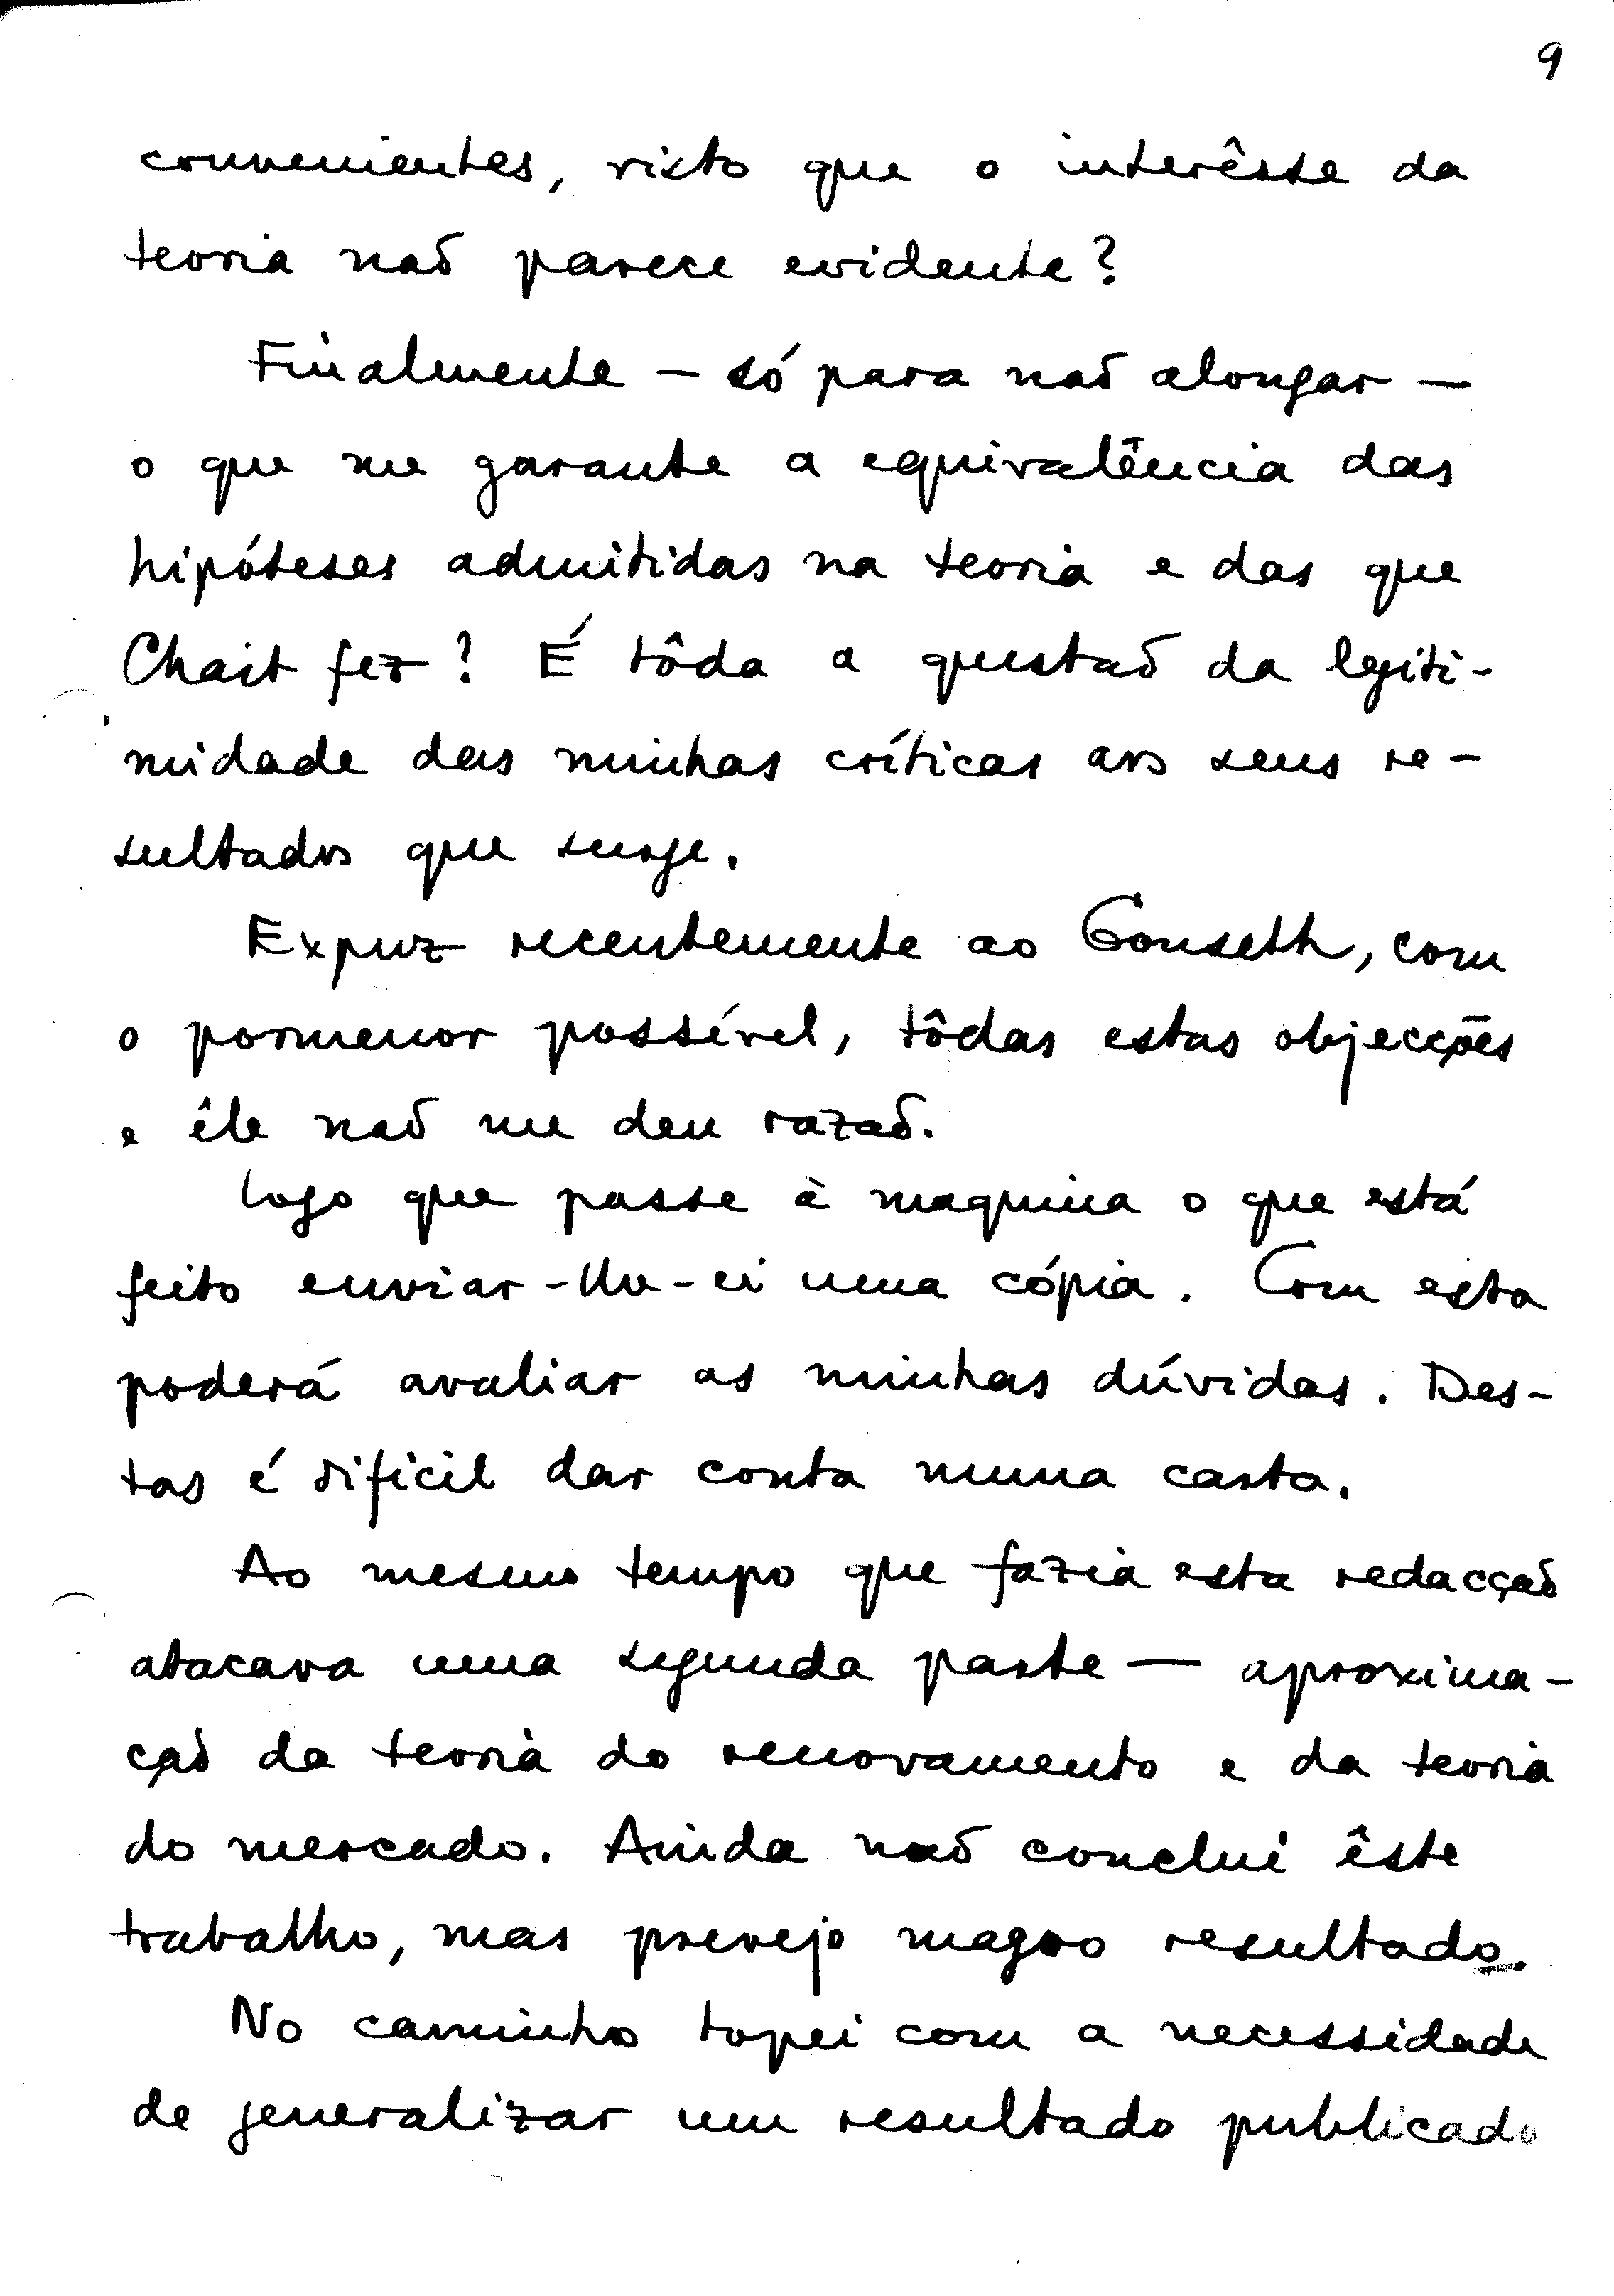 9
convenientes, visto que o interêsse da
teoria não parece evidente?
Finalmente — só para não alongar —
o que me garante a equivalência das
hipóteses admitidas na teoria e das que
Chait fez? É tôda a questão da legiti-
midade das minhas críticas aos seus re-
sultados que surge.
Expuz recentemente ao Gonseth, com
o pormenor possível, tôdas estas objecções
e êle não me deu razão.
Logo que passe à maquina o que está
feito enviar-lhe-ei uma cópia. Com esta
poderá avaliar as minhas dúvidas. Des-
tas é difícil dar conta numa carta.
Ao mesmo tempo que fazia esta redacção
atacava uma segunda parte — aproxima-
ção da teoria do renovamento e da teoria
do mercado. Ainda não conclui êste
trabalho, mas prevejo magro resultado.
No caminho topei com a necessidade
de generalizar um resultado publicado